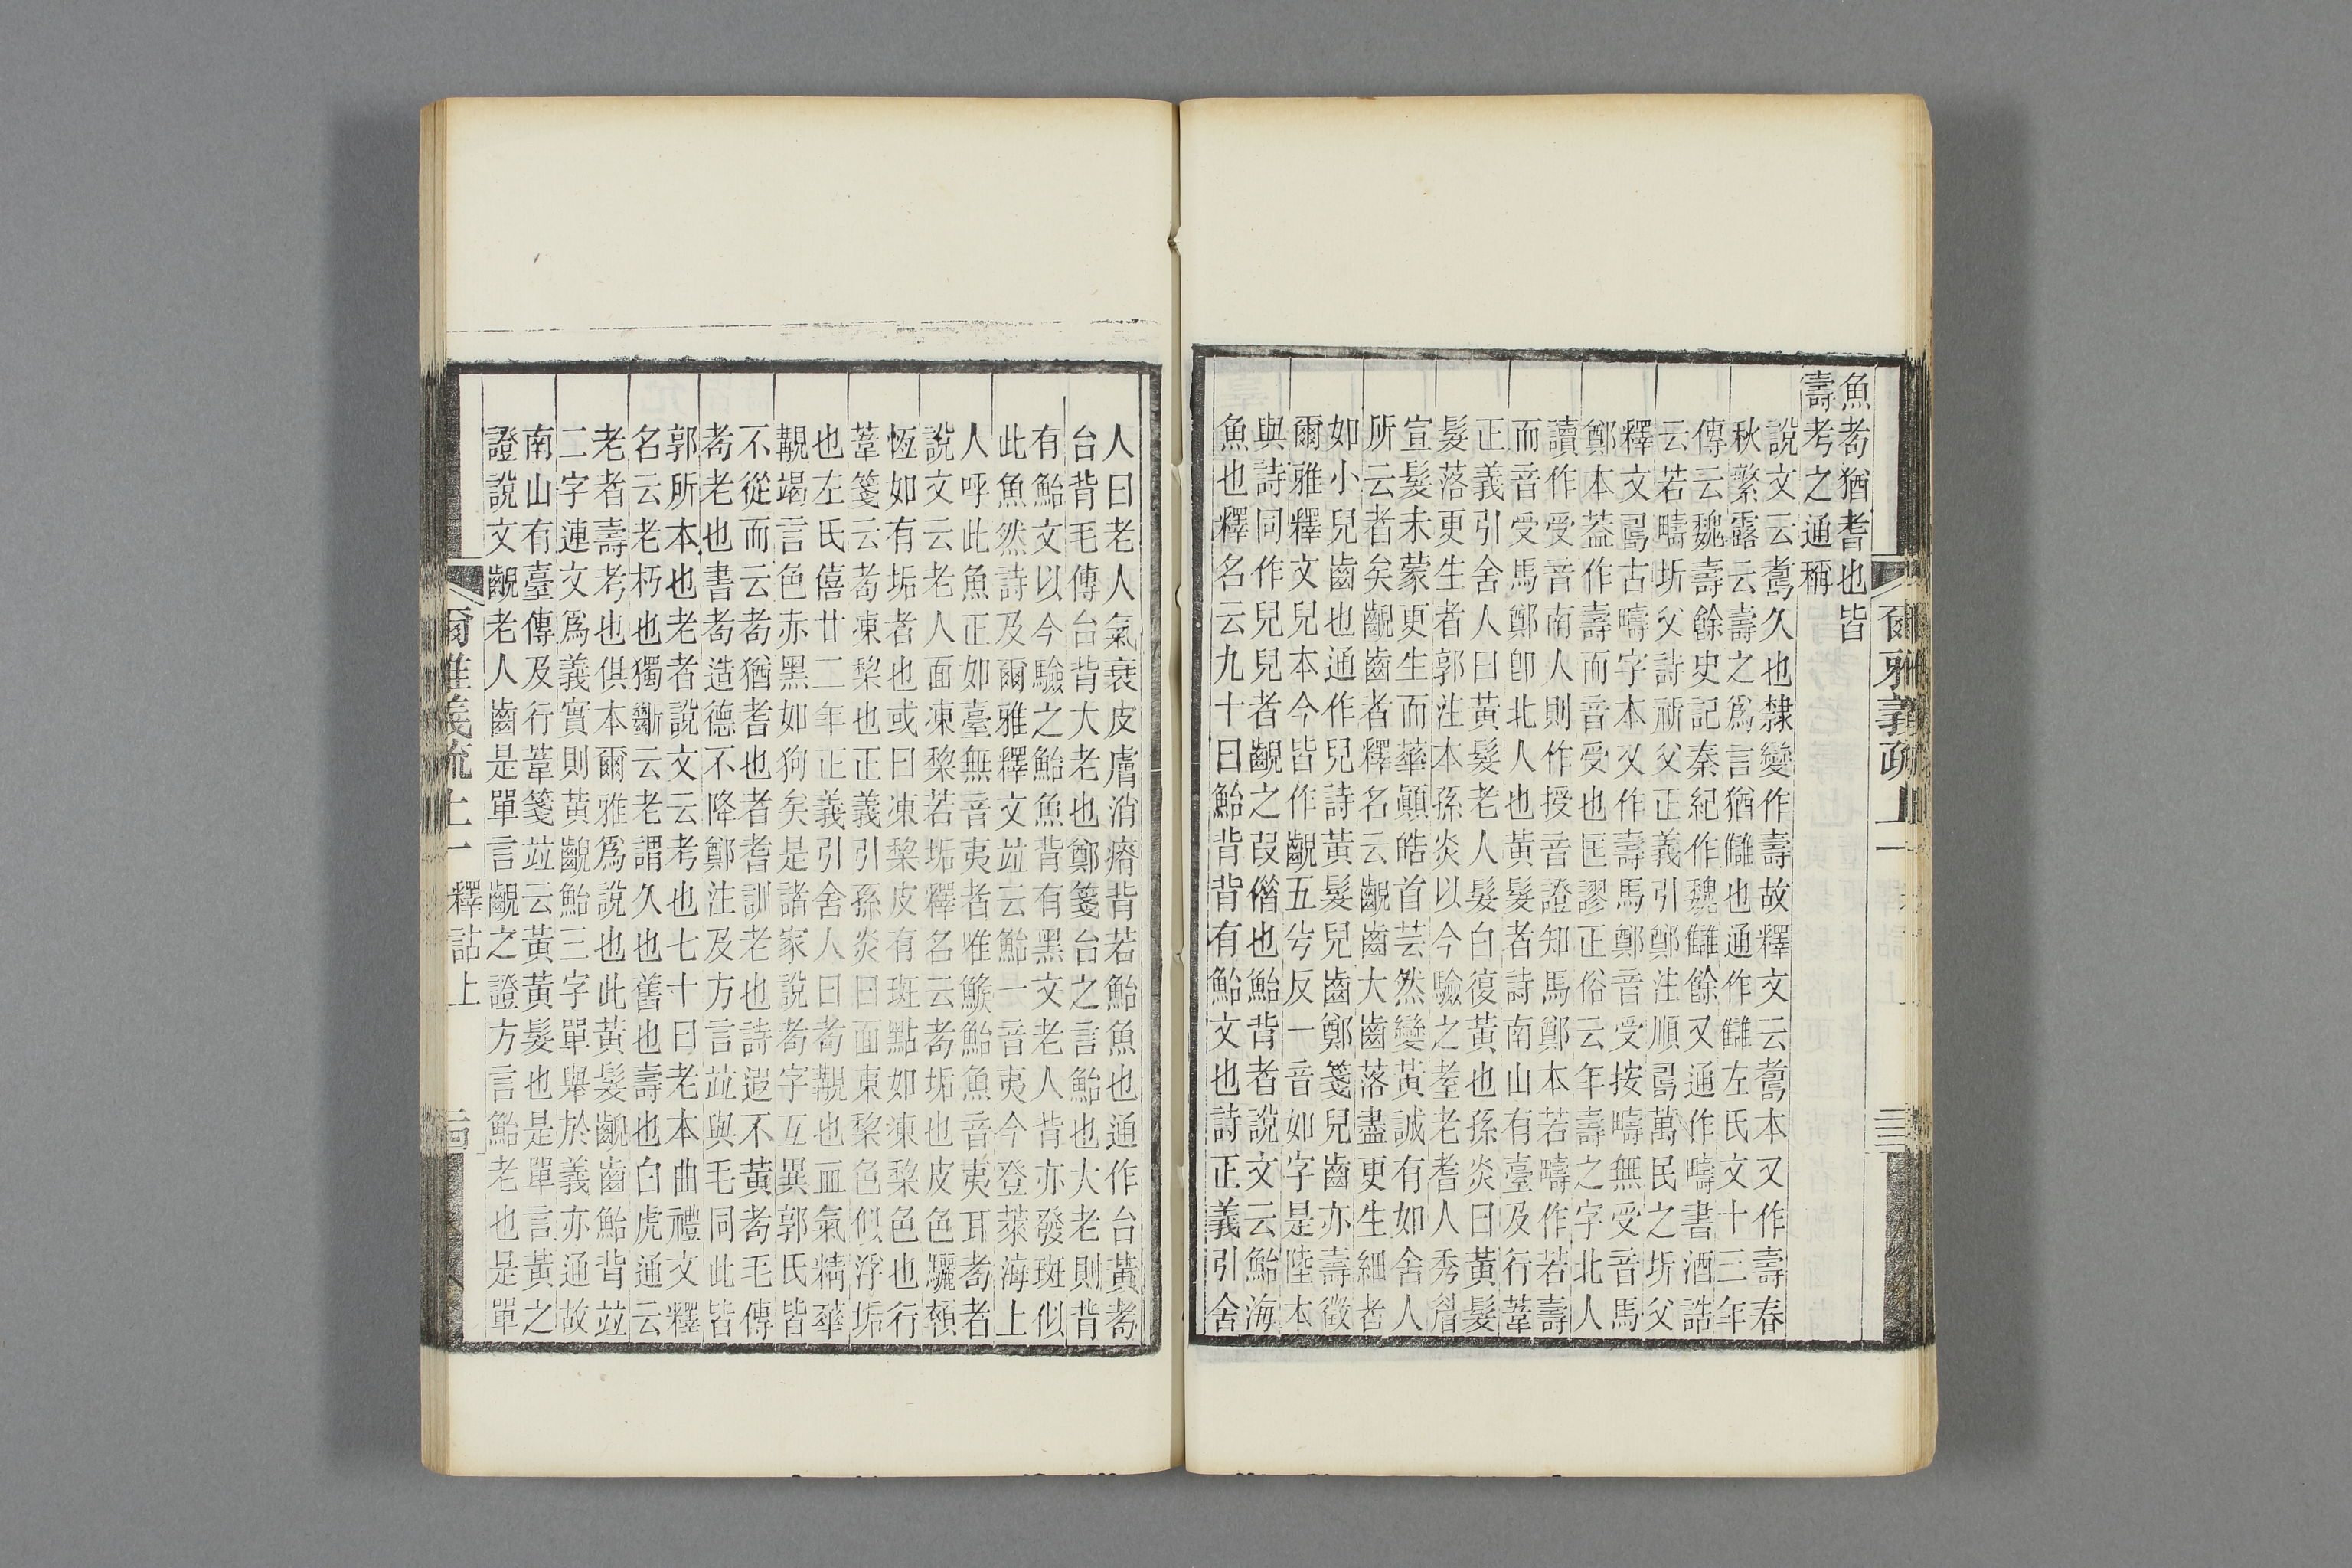 魚耇猶耆也皆
壽考之通稱
說文云𦓃久也隸變作壽故釋文云𦓃本又作壽春
秋繁露云壽之爲言猶讎也通作讎左氏文十三年
傳云魏壽餘史記秦紀作魏讎餘又通作疇書酒誥
云若疇圻父詩祈父正義引鄭注順𠷎萬民之圻父
釋文𠷎古疇字本又作壽馬鄭音受按疇無受音馬
鄭本葢作壽而音受也匡謬正俗云年壽之字北人
讀作受音南人則作授音證知馬鄭本若疇作若壽
而音受馬鄭卽北人也黃髮者詩南山有臺及行葦
正義引舍人曰黃髮老人髮白復黃也孫炎曰黃髮
髮落更生者郭注本孫炎以今驗之耋老耆人秀眉
宣髮未蒙更生而華顚皓首芸然變黃誠有如舍人
所云者矣齯齒者釋名云齯齒大齒落盡更生細者
如小兒齒也通作兒詩黃髮兒齒鄭箋兒齒亦壽徵
爾雅釋文兒本今皆作齯五兮反一音如字是陸本
與詩同作兒兒者齯之叚僭也鮐背者說文云鮐海
魚也釋名云九十曰鮐背背有鮐文也詩正義引舍
爾雅義疏 上一
人曰老人氣衰皮膚消瘠背若鮐魚也通作台黃耇
台背毛傳台背大老也鄭箋台之言鮐也大老則背
有鮐文以今驗之鮐魚背有黑文老人背亦發斑似
此魚然詩及爾雅釋文竝云鮐一音夷今登萊海上
人呼此魚正如臺無音夷者唯鯸鮐魚音夷耳耇者
說文云老人面凍棃若垢釋名云耇垢也皮色驪顇
恆如有垢者也或曰凍棃皮有斑點如凍棃色也行
葦箋云耇凍棃也正義引孫炎曰面凍棃色似浮垢
也左氏僖廿二年正義引舍人曰耇覯也血氣精華
覯竭言色赤黑如狗矣是諸家說耇字互異郭氏皆
不從而云耇猶耆也者耆訓老也詩遐不黃耇毛傳
耇老也書耇造德不降鄭注及方言竝與毛同此皆
郭所本也老者說文云考也七十曰老本曲禮文釋
名云老朽也獨斷云老謂久也舊也壽也白虎通云
老者壽考也俱本爾雅爲說也此黃髮齯齒鮐背竝
二字連文爲義實則黃齯鮐三字單舉於義亦通故
南山有臺傳及行葦箋竝云黃黃髮也是單言黃之
證說文齯老人齒是單言齯之證方言鮐老也是單
爾雅義疏 上一 釋詁上